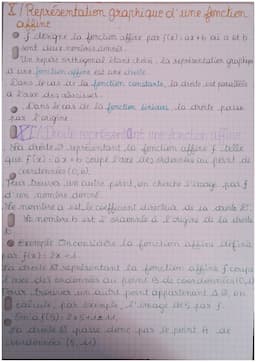 I / Représentation graphique d'une fonction
affine
f désigne la fonction affine par f(x) = ax + b où a et b
sont deux nombres donnés.
Un repère orthogonal étant choisi, la représentation graphique
d'une fonction affine est une droite.
Dans le cas de la fonction constante, la droite est parallèle
à l'axe des abscisses.
Dans le cas de la fonction linéaire la droite passe
par l'origine
II / Droite représentant une fonction affine
La droite D représentant la fonction affine f telle
que f(x) = ax + b coupe l'axe des ordonnées au point de
coordonnées (0, b).
Pour trouver un autre point, on cherche l'image par f
d'un nombre donné.
Le nombre a est le coefficient directeur de la droite D.
Le nombre b est l'ordonnée à l'origine de la droite
Exemple On considère la fonction affine définie
par f(x) = 2x + 1.
La droite D représentant la fonction affine f coupe
l'axe des ordonnées au point B de coordonnées (0, 1)
Pour trouver un autre point appartenant à D, on
calcule, par exemple, l'image de 5 par f.
f(5) = 2 × 5 + 1 = 11.
La droite D passe donc par le point A de
coordonnées (5, 11)